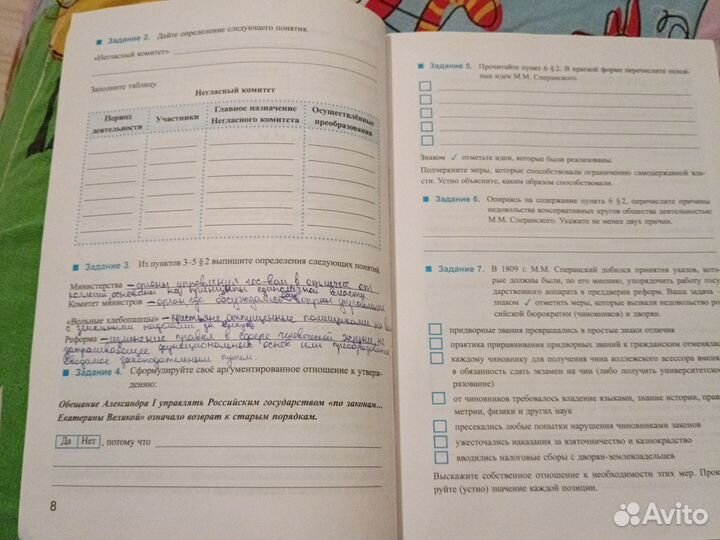 Задание 2. Дайте определение следующего понятия.
«Негласный комитет»
Заполните таблицу.
Негласный комитет
Период деятельности
Участники
Главное назначение Негласного комитета
Осуществлённые преобразования
Задание 3. Из пунктов 3–5 § 2 выпишите определения следующих понятий.
Министерства – органы управления гос-вом в отличие от
коллегий основаны на принципе единоличной власти.
Комитет министров – орган где обсуждались вопросы управления
«Вольные хлебопашцы» – крестьяне отпущенные помещиками на
с земельными наделами за выкуп
Реформа – изменение правил в сфере человеческой жизни, не
затрагивающее функциональных основ или преобразование
вводимое законодательным путём.
Задание 4. Сформулируйте своё аргументированное отношение к утвер-
ждению:
Обещание Александра I управлять Российским государством «по законам...
Екатерины Великой» означало возврат к старым порядкам.
Да Нет , потому что
8
Задание 5. Прочитайте пункт 6 § 2. В краткой форме перечислите основ-
ные идеи М.М. Сперанского.
Знаком ✓ отметьте идеи, которые были реализованы.
Подчеркните меры, которые способствовали ограничению самодержавной вла-
сти. Устно объясните, каким образом способствовали.
Задание 6. Опираясь на содержание пункта 6 § 2, перечислите причины
недовольства консервативных кругов общества деятельностью
М.М. Сперанского. Укажите не менее двух причин.
Задание 7. В 1809 г. М.М. Сперанский добился принятия указов, кото
должны были, по его мнению, упорядочить работу госу
дарственного аппарата в преддверии реформ. Ваша задача –
знаком ✓ отметить меры, которые вызвали недовольство ро
сийской бюрократии (чиновников) и дворян.
придворные звания превращались в простые знаки отличия
практика приравнивания придворных званий к гражданским отменялас
каждому чиновнику для получения чина коллежского асессора вмен
в обязанность сдать экзамен на чин (либо получить университетское
разование)
от чиновников требовалось владение языками, знание истории, прав
метрии, физики и других наук
пресекались любые попытки нарушения чиновниками законов
ужесточались наказания за взяточничество и казнокрадство
вводились налоговые сборы с дворян-землевладельцев
Выскажите собственное отношение к необходимости этих мер. Проком
руйте (устно) значение каждой позиции.
Avito